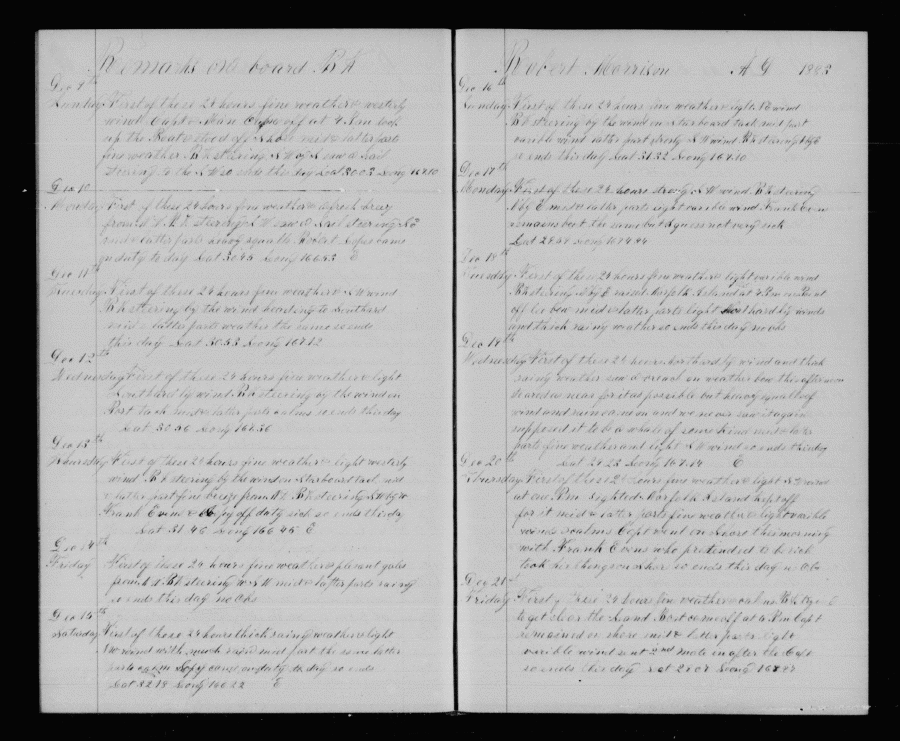 Remarks on board Bk
Dec 9th
Sunday First of these 24 hours fine weather & westerly
wind Capt & Man came off at 4 Pm took
up the Boat & stood off shore mid & latter parts
fine weather Bk steering saw a sail
steering to the so ends this day Lat 30.03 Long 167.10
Dec 10
Monday First of these 24 hours fine weather & fresh breeze
from steering saw a sail steering
mid & latter parts heavy squalls Robert came
on duty to day Lat 30.45 Long 166.53 E
Dec 11th
Tuesday First of these 24 hours fine weather & wind
Bk steering by the wind heading to Southard
mid & latter parts weather the same so ends
this day Lat 30.53 Long 167.12
Dec 12th
Wednesday First of these 24 hours fine weather & light
Southardly wind Bk steering by the wind on
Port tack mid & latter parts calms so ends this day
Lat 30.56 Long 167.36
Dec 13th
Thursday First of these 24 hours fine weather & light westerly
wind Bk steering by the wind on Starboard tack mid
& latter part fine breeze from Bk steering
Frank Evens & off duty sick so ends this day
Lat 31.46 Long 166.45 E
Dec 14th
Friday First of these 24 hours fine weather & plesent gales
from Bk steering mid & latter parts rainy
so ends this day no Obs
Dec 15th
Saturday First of these 24 hours thick rainy weather & light
wind with much rain mid part the same latter
parts calm came on duty to day so ends
Lat 32.18 Long 166.22 E
Robert Morrison A G 1883
Dec 16th
Sunday First of these 24 hours fine weather & light wind
Bk steering by the wind on Starboard tack mid part
variable wind latter part steady S W wind Bk steering
so ends this day Lat 31.32 Long 167.10
Dec 17th
Monday First of these 24 hours strong S W wind Bk steering
N by E mid & latter parts light variable wind Frank Evens
remains about the same but I guess not very sick
Lat 29.59 Long 167.44
Dec 18th
Tuesday First of these 24 hours fine weather & light variable wind
Bk steering N by E raised Norfolk Island at 4 Pm
off lee bow mid & latter parts light Northardly winds
and thick rainy weather so ends this day no obs
Dec 19th
Wednesday First of these 24 hours northerdly wind and thick
rainy weather saw a breach on weather bow this afternoon
tacked as near for it as possible but heavy squalls of
wind and rain came on and we never saw it again
supposed it to be a whale of some kind mid & latter
parts fine weather and light S W wind so ends this day
Lat 29.23 Long 167.14 E
Dec 20th
Thursday First of these 24 hours fine weather & light wind
at one Pm sighted Norfolk Island kept off
for it mid & latter parts fine weather & light varible
winds & calms Capt went on shore this morning
with Frank Evens who pretended to be sick
took his things on shore so ends this day no Obs
Dec 21st
Friday First of these 24 hours fine weather & calms Bk
to get clear the Land Boat came off at 4 Pm Capt
remained on shore mid & latter parts light
varible wind sent 2nd mate in after the Capt
so ends this day Lat 29.07 Long